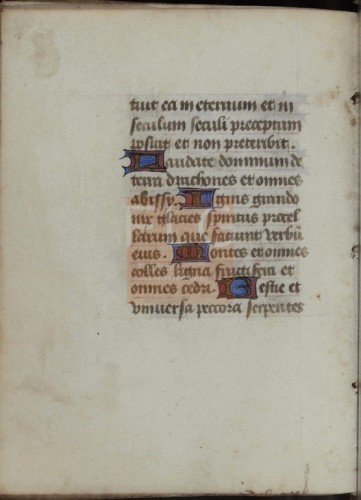 tuit ea in eternum et in
seculum seculi preceptum
posuit et non preteribit.
Laudate dominum de
terra drachones et omnes
abissy. Ignis grando
nix glacies spiritus procel
larum que faciunt verbū
eius. Montes et omnes
colles ligna fructifera et
omnes cedri. Bestie et
universa peccora serpentes